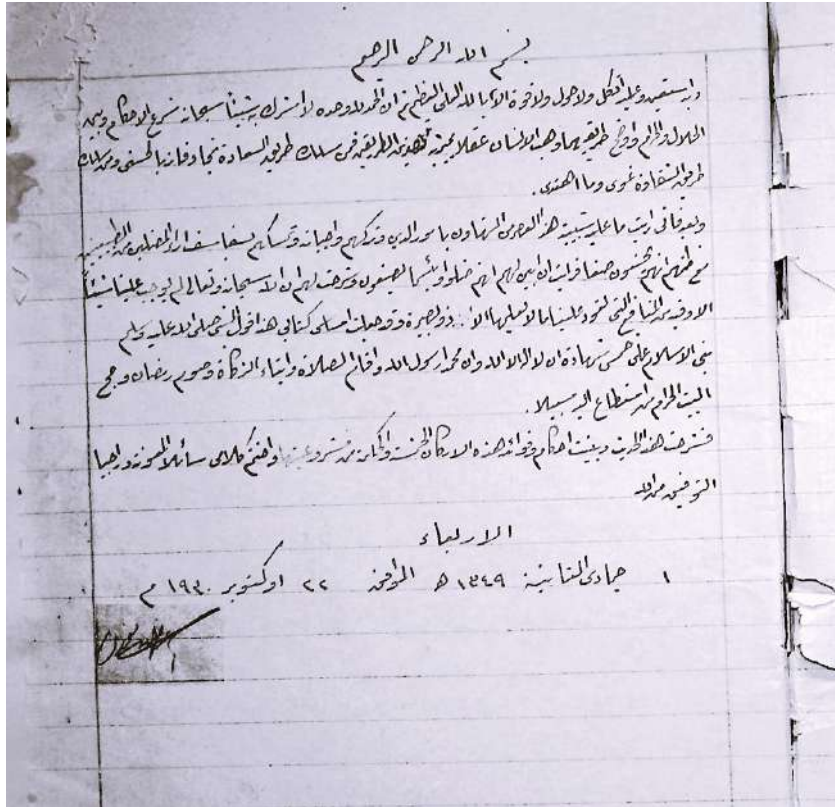 بسم الله الرحمن الرحيم
وبه استعين وعليه أتكل ولا حول ولا قوة الا بالله العلي العظيم ثم ان الحمد لله وحده لا اشرك به شيئاً سبحانه شرع الاحكام وبين
الحلال والحرام واوضح طريقيهما وهب الانسان عقلا يميز به هذين الطريقين فمن سلك طريق السعادة نجا وفاز بالحسنى ومن سلك
طريق الشقاوة غوى وما اهتدى.
وبعد فاني رايت ما عليه شبيبة هذا العصر من التهاون بامور الدين وتركهم واجباته وتمسكهم بسفاسف اراء المضلين من الطبيعيين
مع ظنهم انهم يحسنون صنعا فرات ان ابين لهم انهم ضلوا وبئسما يصنعون وشرحت لهم ان الله سبحانه وتعالى لم يوجب علينا شيئاً
الا وفيه من المنافع التي تعود علينا ما لا يعلمها الا ذو بصيرة وقد جعلت اساس كتابي هذا قول النبي صلى الله عليه وسلم
بني الاسلام على خمس شهادة ان لا اله الا الله وان محمدا رسول الله واقام الصلاة وايتاء الزكاة وصوم رمضان وحج
البيت الحرام من استطاع اليه سبيلا.
فشرحت هذا الحديث وبينت احكام وفوائد هذه الاركان الخمسة والحكمة من مشروعيتها واختتم كلامي سائلا المعونة وراجيا
التوفيق من الله
الاربعاء
١ جمادى الثانية ١٣٤٩ هـ الموافق ٢٢ اوكتوبر ١٩٣٠ م